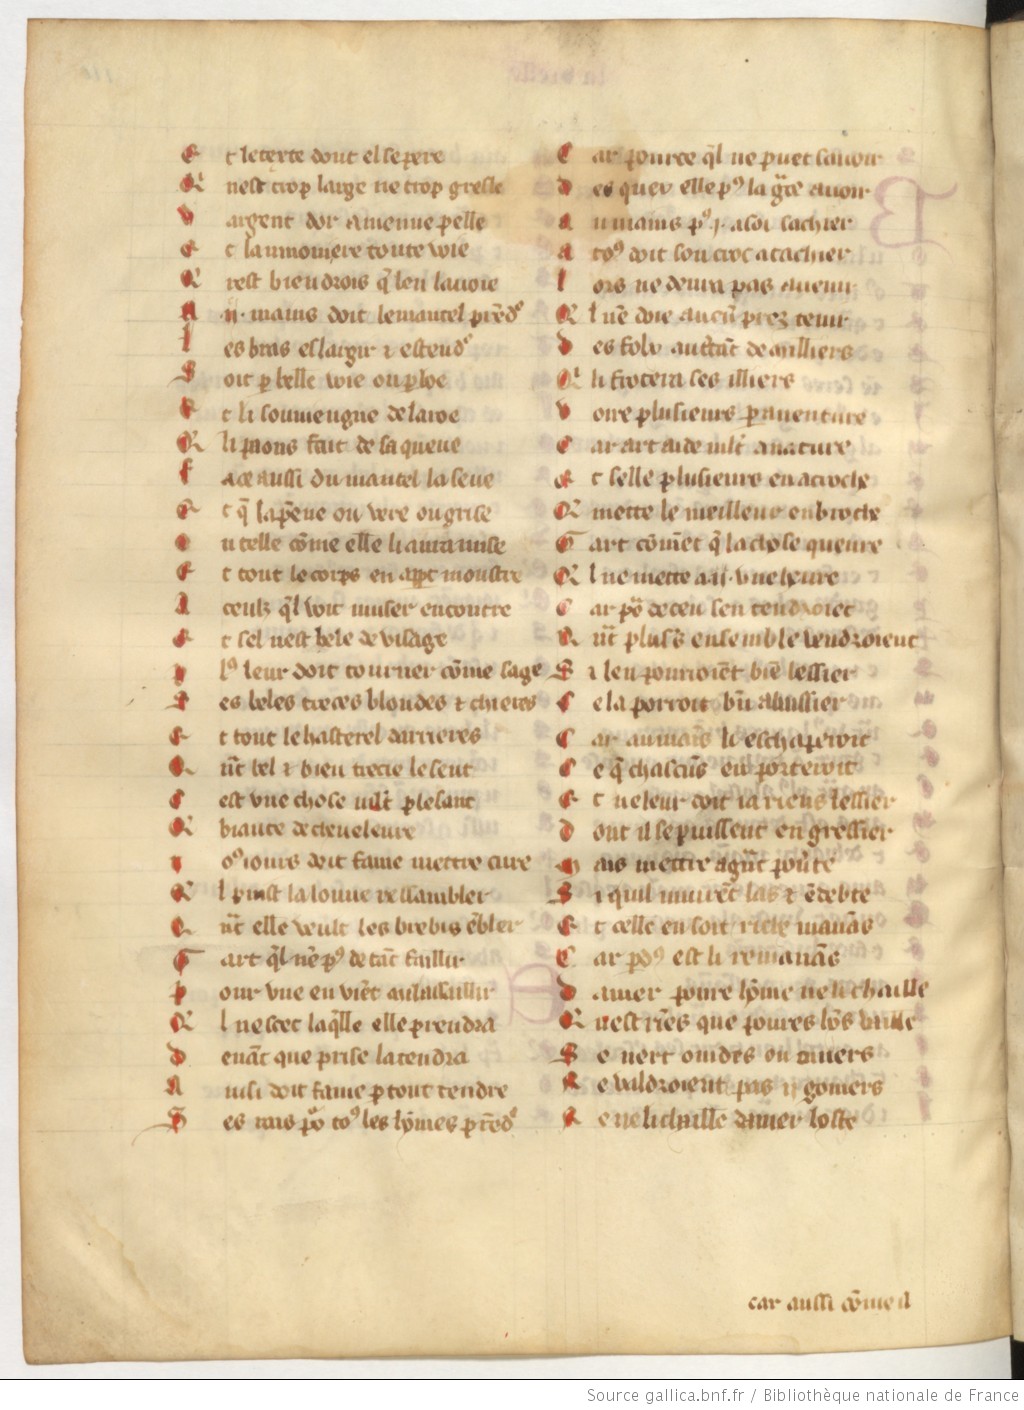 E t le tertre dont el se pere
Q' nest trop large ne trop gresle
D argent dor a menue pelle
E t laumoniere toute voie
Q' rest bien drois q̃ len la voie
A .ii. mains doit le mantel p̃rẽdʼ
L es bras eslargir ⁊ estendʼ
S oit ꝑ belle voie ou ꝑ boe
E t li souviengne de la roe
Q li paons fait de sa queue
F ace aussi du mantel la seue
E t q̃ la pẽne ou vere ou grise
O u telle cõme elle li aura mise
E t tout le corps en ap̃t moustre
A ceulz q̃l voit muser en contre
E t sel nest bele de visage
P lʼ leur doit tourner cõme sage
S es beles treces blondes ⁊ chieres
E t tout le hasterel darrieres
Q nt̃ bel ⁊ bien trecie le sent
C est vne chose mlt̃ plesant
Q biaute de cheueleure
T oʼ iours doit fame mettre cure
Q l puist la louue ressambler
Q nt̃ elle veult les brebis ẽbler
C art q̃l nẽ pʼ de tãt faillir
P our vne en viẽt mil assaillir
Q l ne scet laq̃lle elle prendra
D euãt que prise la tendra
A insi doit fame ꝑ tout tendre
S es rais põ toʼ les hõmes p̃rẽdʼ
C ar pource q̃l ne puet sauoir
D es quex elle pʼ la g̃ce auoir
A u mains pʼ .j. a soi sachier
A toʼ doit son croc atachier
L ors ne deura pas auenir
Q l nẽ doie aucũ prez tenir
D es folz autãt de milliers
Q' li frotera ses illiers
V oire plusieurs ꝑ auenture
C ar art aide mlt̃ a nature
E t selle plusieurs en acroche
Q mette le meilleur en broche
G art cõmẽt q̃ la chose queure
Q l ne mette a .ij. vne heure
C ar põ deceu sen tendroiet
Q nt̃ pluss̃ ensemble vendroient
S i len pourroiẽt biẽ lessier
C e la porroit bñ abaissier
C ar au mains li eschaperoit
C e q̃ chascũs en porteroit
E t ne leur doit ia riens lessier
D ont il se puissent engressier
M ais mettre a gñt pourte
S i quil muirẽt las ⁊ ẽdebte
E t celle en soit riche manãs
C ar pdʼ est li remanãs
D amer poure hõme ne li chaille
Q' nest riẽs que poures hõs vaille
S e uert ouides ou omers
N e valdroient pas .ij. gomers
N e ne li chaille damer hoste
car aussi cõme il